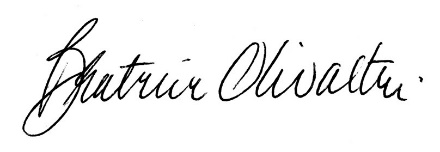 Beatrice Olivastri